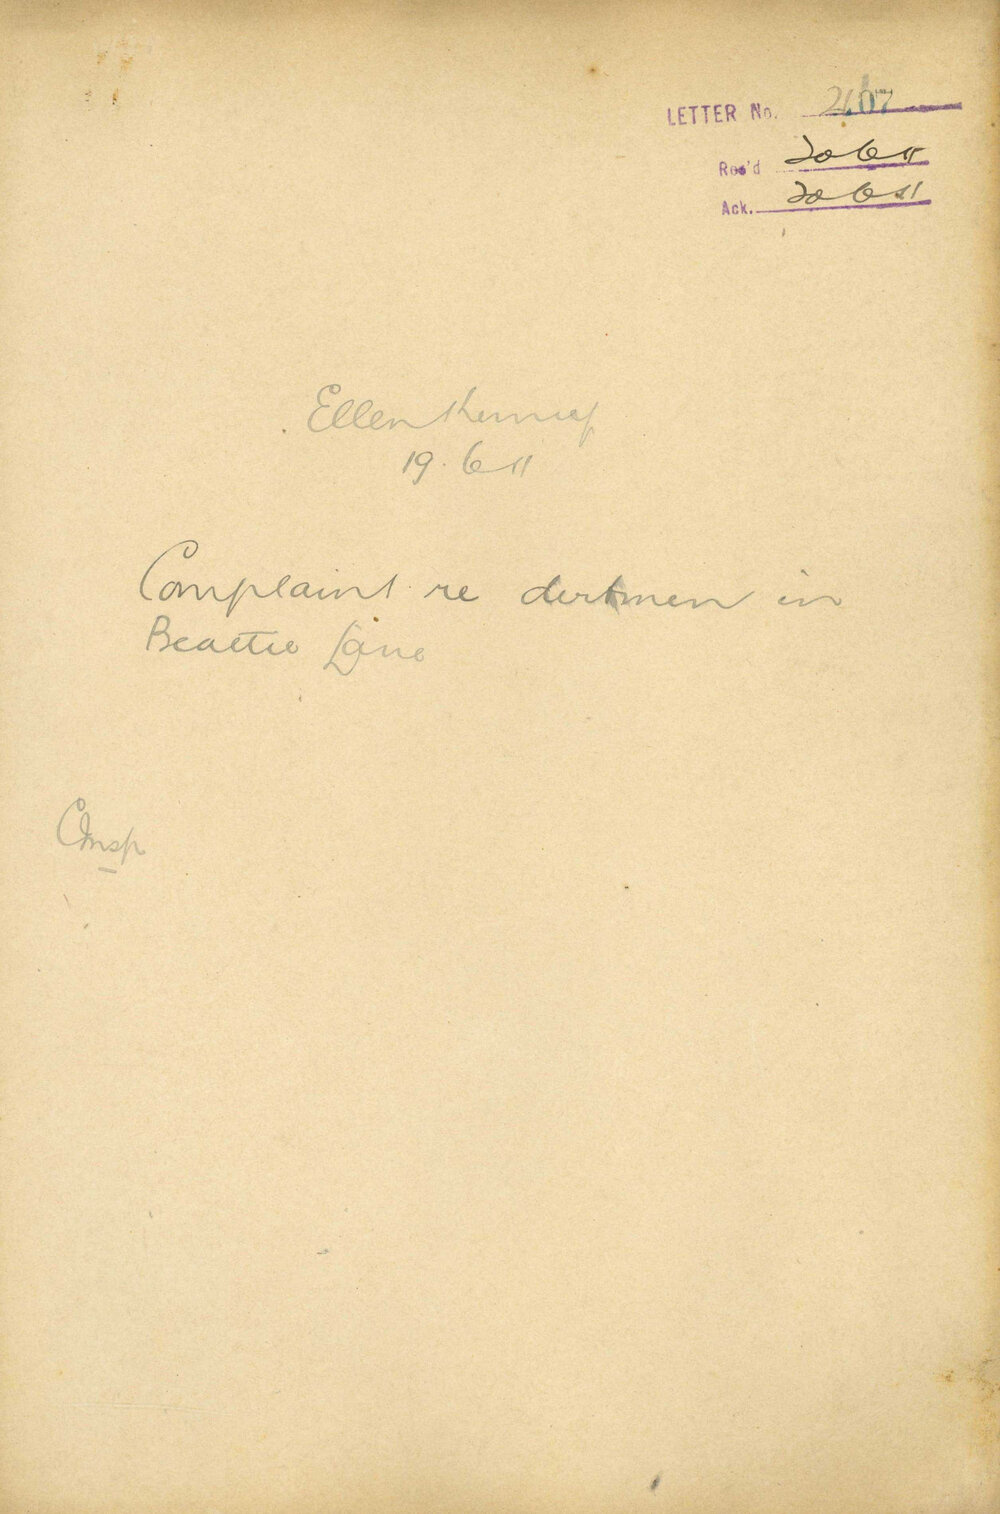 LETTER No. 2167
Rec'd 20 6 11
Ack. 20 6 11
Ellen
19.6 11
Complaint re dirtmen in
Beattie Lane
CInsp